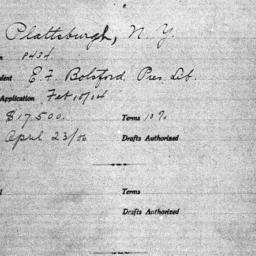 Plattsburgh, N.Y.
P434
dent E.F. Botsford, Pres. Lib.
Application Feb 10/04
$17,500. Terms 10%
April 23/06 Drafts Authorized
Terms
Drafts Authorized